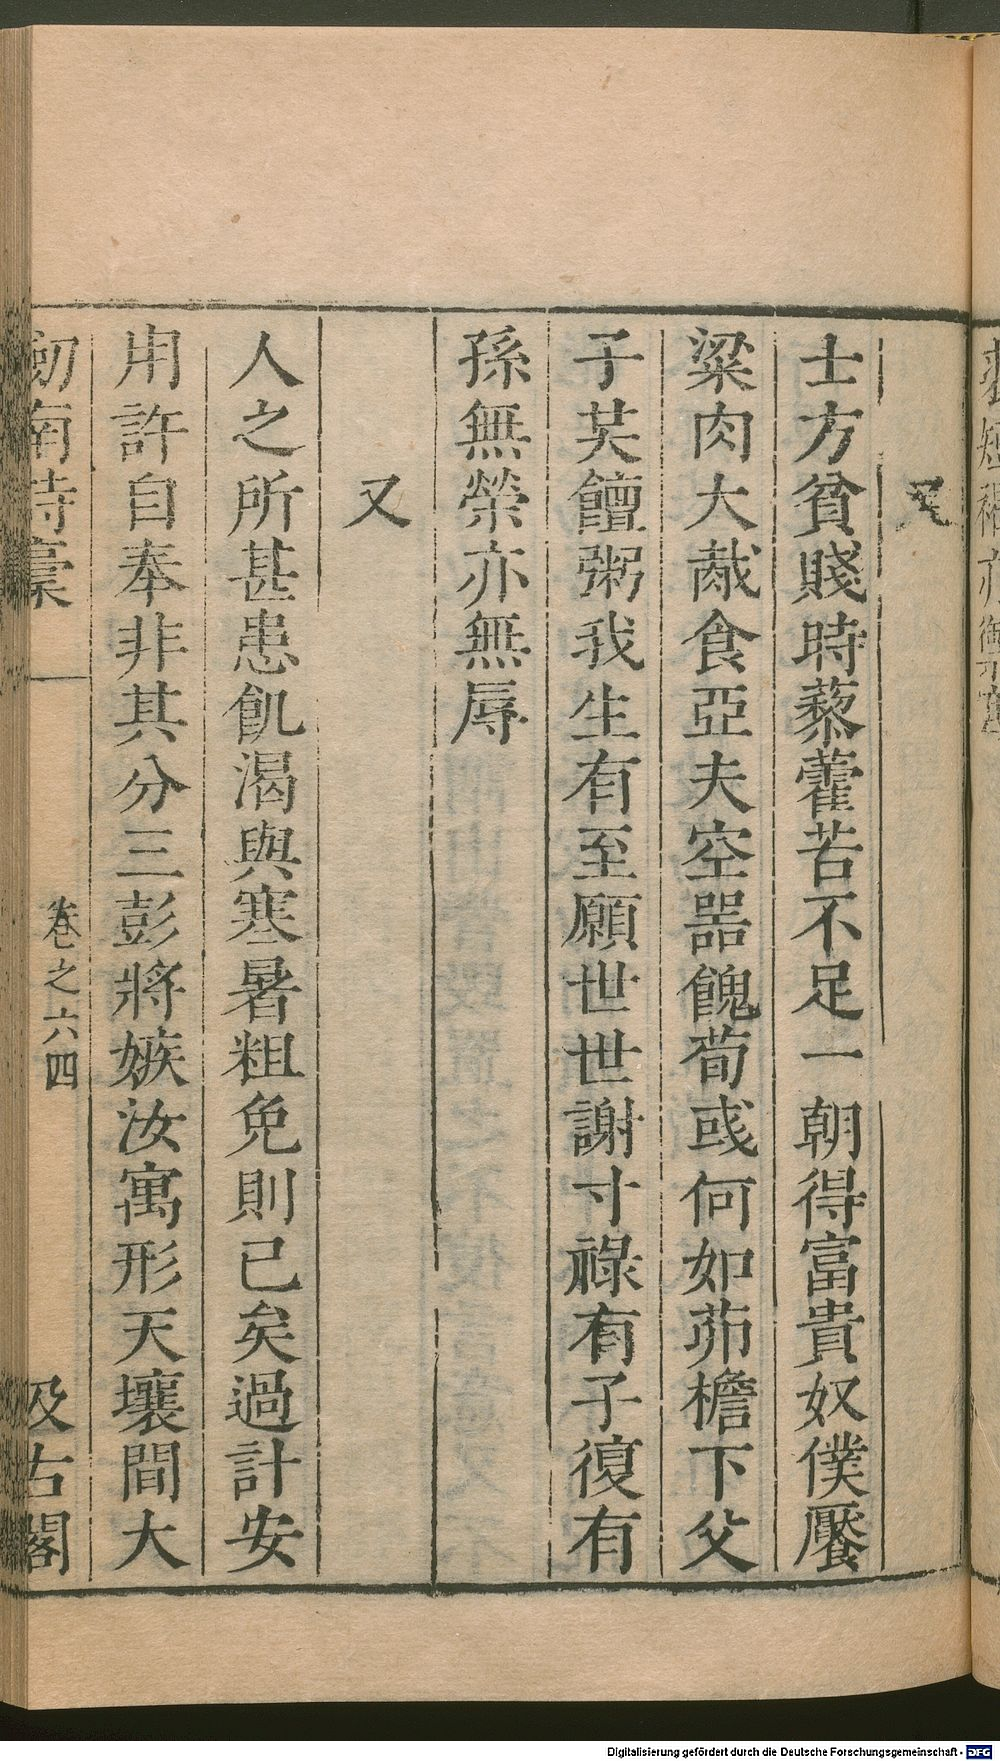 又
士方貧賤時藜藿苦不足一朝得富貴奴僕饜
粱肉大胾食亞夫空器餽荀彧何如茆檐下父
子共饘粥我生有至願世世謝寸祿有子復有
孫無榮亦無辱
又
人之所甚患飢渴與寒暑粗免則已矣過計安
用許自奉非其分三彭將嫉汝寓形天壤間大
劒南詩稾
卷之六四
汲古閣
Digitalisierung gefördert durch die Deutsche Forschungsgemeinschaft - DFG